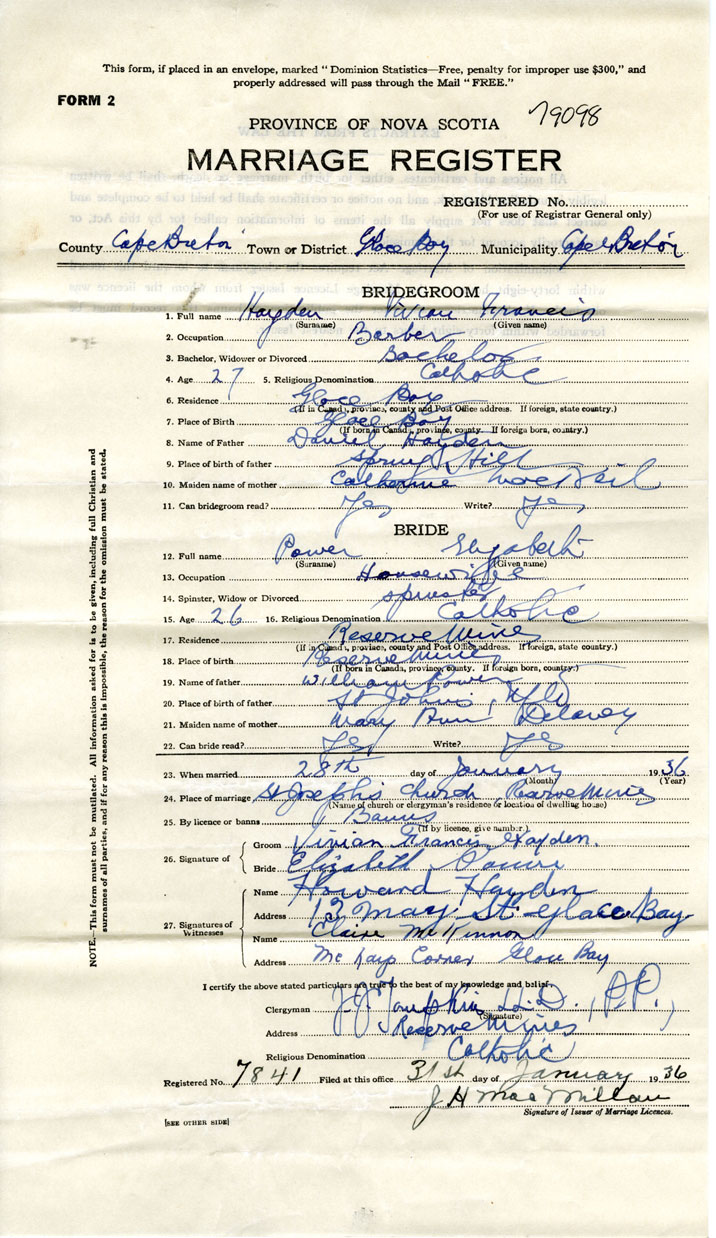 This form, if placed in an envelope, marked "Dominion Statistics—Free, penalty for improper use $300," and
properly addressed will pass through the Mail "FREE."
FORM 2
79098
PROVINCE OF NOVA SCOTIA
MARRIAGE REGISTER
REGISTERED No.
(For use of Registrar General only)
County Cape Breton Town or District Glace Bay Municipality Cape Breton
BRIDEGROOM
1. Full name Hayden Vivian Francis
(Surname) (Given name)
2. Occupation Barber
3. Bachelor, Widower or Divorced Bachelor
4. Age 27 5. Religious Denomination Catholic
6. Residence Glace Bay
(If in Canada, province, county and Post Office address. If foreign, state country.)
7. Place of Birth Glace Bay
(If born in Canada, province, county. If foreign born, country.)
8. Name of Father Daniel Hayden
9. Place of birth of father Spring Hill
10. Maiden name of mother Catherine MacNeil
11. Can bridegroom read? Yes Write? Yes
BRIDE
12. Full name Power Elizabeth
(Surname) (Given name)
13. Occupation Housewife
14. Spinster, Widow or Divorced spinster
15. Age 26 16. Religious Denomination Catholic
17. Residence Reserve Mines
(If in Canada, province, county and Post Office address. If foreign, state country.)
18. Place of birth Reserve Mines
(If born in Canada, province, county. If foreign born, country.)
19. Name of father William Power
20. Place of birth of father St John's, Nfld
21. Maiden name of mother Mary Ann Delaney
22. Can bride read? Yes Write? Yes
23. When married 28th day of January 1936
(Month) (Year)
24. Place of marriage St Joseph's Church, Reserve Mines
(Name of church or clergyman's residence or location of dwelling house)
25. By licence or banns Banns
(If by licence, give number.)
26. Signature of
Groom Vivian Francis Hayden.
Bride Elizabeth Power
27. Signatures of Witnesses
Name Howard Hayden
Address 13 May St Glace Bay
Name Claire McKinnon
Address McKays Corner Glace Bay
I certify the above stated particulars are true to the best of my knowledge and belief.
Clergyman J.J. Tompkins LL.D., P.P.
(Signature)
Address Reserve Mines
Religious Denomination Catholic
Registered No. 7841 Filed at this office 31st day of January 1936
J H MacMillan
Signature of Issuer of Marriage Licences.
[SEE OTHER SIDE]
NOTE.—This form must not be mutilated. All information asked for is to be given, including full Christian and
surnames of all parties, and if for any reason this is impossible, the reason for the omission must be stated.